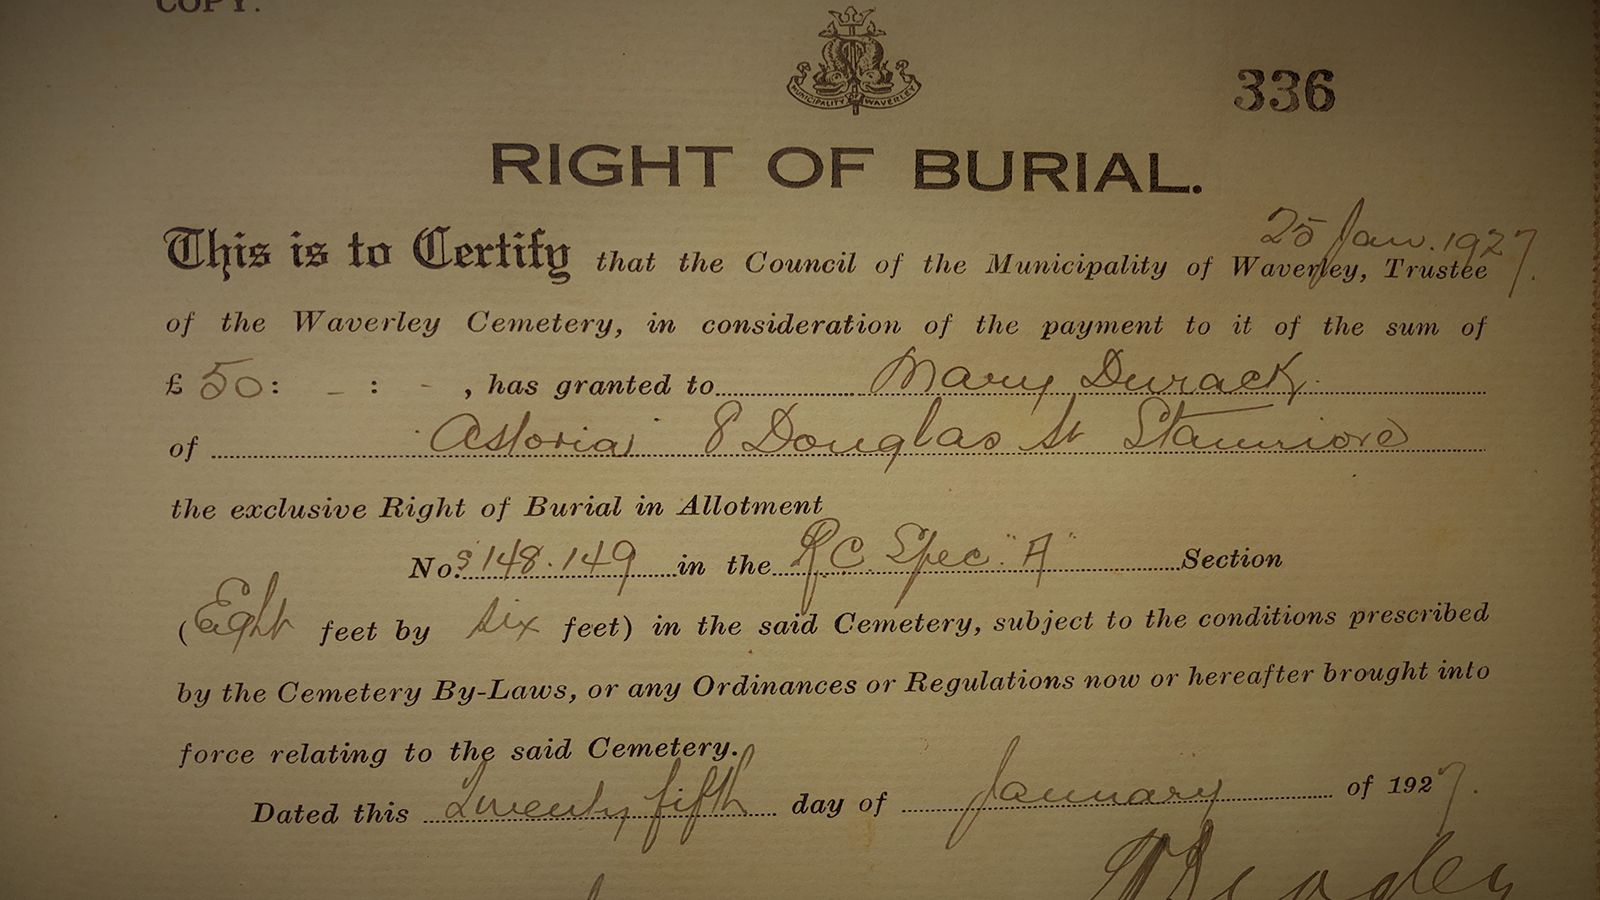 COPY.
MUNICIPALITY OF WAVERLEY
336
RIGHT OF BURIAL.
25 Jan. 1927.
This is to Certify that the Council of the Municipality of Waverley, Trustee
of the Waverley Cemetery, in consideration of the payment to it of the sum of
£ 50 : - : - , has granted to Mary Durack
of "Astoria" 8 Douglas St Stanmore
the exclusive Right of Burial in Allotment
No.s 148.149 in the R.C. Spec "A" Section
(Eight feet by six feet) in the said Cemetery, subject to the conditions prescribed
by the Cemetery By-Laws, or any Ordinances or Regulations now or hereafter brought into
force relating to the said Cemetery.
Dated this Twenty fifth day of January of 1927.